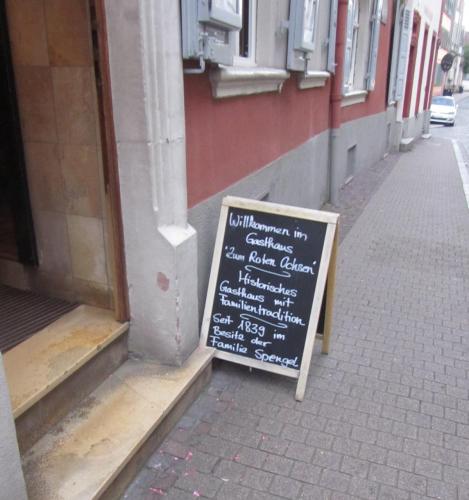 Willkommen im
Gasthaus
"Zum Roten Ochsen"
Historisches
Gasthaus mit
Familientradition
Seit 1839 im
Besitz der
Familie Spengel